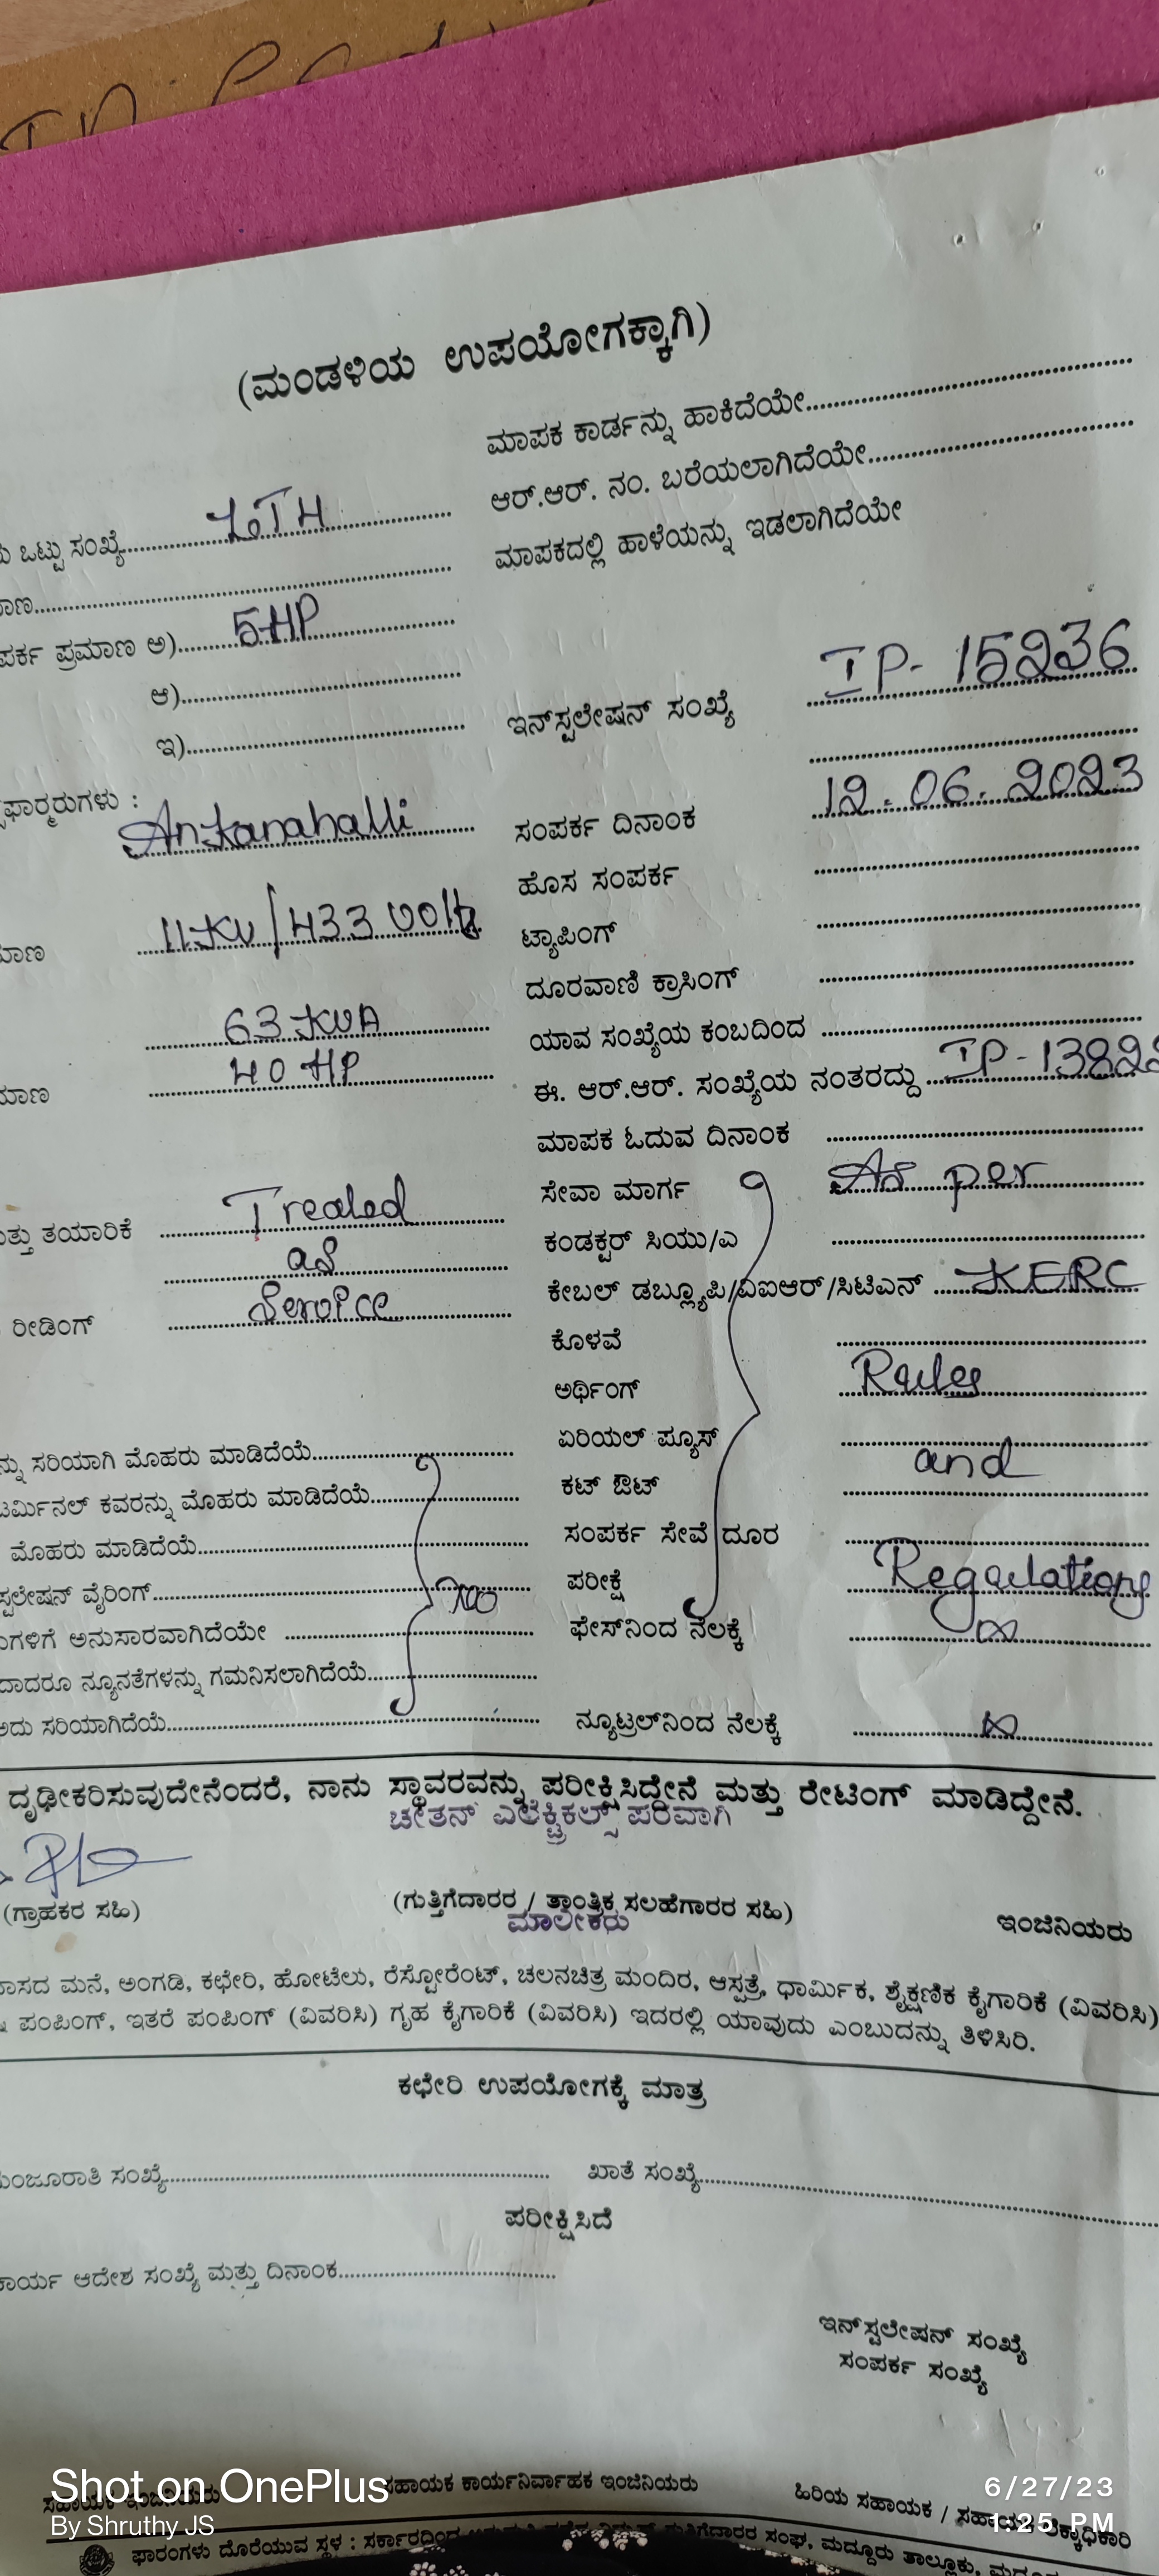 (ಮಂಡಳಿಯ ಉಪಯೋಗಕ್ಕಾಗಿ)
ಮಾಪಕ ಕಾರ್ಡನ್ನು ಹಾಕಿದೆಯೇ
ಒಟ್ಟು ಸಂಖ್ಯೆ
ಆರ್.ಆರ್. ನಂ. ಬರೆಯಲಾಗಿದೆಯೇ
ಮಾಪಕದಲ್ಲಿ ಹಾಳೆಯನ್ನು ಇಡಲಾಗಿದೆಯೇ
ಪ್ರಮಾಣ ಅ) 5HP
ಆ)
ಇನ್‌ಸ್ಟಲೇಷನ್ ಸಂಖ್ಯೆ IP- 15236
ಇ)
Ankanahalli
ಸಂಪರ್ಕ ದಿನಾಂಕ 12.06.2023
ಹೊಸ ಸಂಪರ್ಕ
11KV/433 volts
ಟ್ಯಾಪಿಂಗ್
ದೂರವಾಣಿ ಕ್ರಾಸಿಂಗ್
63 KVA
ಯಾವ ಸಂಖ್ಯೆಯ ಕಂಬದಿಂದ
40 HP
ಈ. ಆರ್.ಆರ್. ಸಂಖ್ಯೆಯ ನಂತರದ್ದು IP-1382
ಮಾಪಕ ಓದುವ ದಿನಾಂಕ
ತಯಾರಿಕೆ Treated
ಸೇವಾ ಮಾರ್ಗ As per
as
ಕಂಡಕ್ಟರ್ ಸಿಯು/ಎ
ರೀಡಿಂಗ್ Service
ಕೇಬಲ್ ಡಬ್ಲ್ಯೂಪಿ/ವಿಐಆರ್/ಸಿಟಿಎನ್ KERC
ಕೊಳವೆ
ಅರ್ಥಿಂಗ್ Rules
ಸರಿಯಾಗಿ ಮೊಹರು ಮಾಡಿದೆಯೆ
ಏರಿಯಲ್ ಪ್ಯೂಸ್
and
ಕವರನ್ನು ಮೊಹರು ಮಾಡಿದೆಯೆ
ಕಟ್ ಔಟ್
ಮೊಹರು ಮಾಡಿದೆಯೆ
ಸಂಪರ್ಕ ಸೇವೆ ದೂರ
ವೈರಿಂಗ್
ಪರೀಕ್ಷೆ Regulations
ಅನುಸಾರವಾಗಿದೆಯೇ
ಫೇಸ್‌ನಿಂದ ನೆಲಕ್ಕೆ ∞
ನ್ಯೂನತೆಗಳನ್ನು ಗಮನಿಸಲಾಗಿದೆಯೆ
ಸರಿಯಾಗಿದೆಯೆ
ನ್ಯೂಟ್ರಲ್‌ನಿಂದ ನೆಲಕ್ಕೆ ∞
ದೃಢೀಕರಿಸುವುದೇನೆಂದರೆ, ನಾನು ಸ್ಥಾವರವನ್ನು ಪರೀಕ್ಷಿಸಿದ್ದೇನೆ ಮತ್ತು ರೇಟಿಂಗ್ ಮಾಡಿದ್ದೇನೆ.
ಚೇತನ್ ಎಲೆಕ್ಟ್ರಿಕಲ್ಸ್ ಪರವಾಗಿ
(ಗ್ರಾಹಕರ ಸಹಿ) (ಗುತ್ತಿಗೆದಾರರ / ತಾಂತ್ರಿಕ ಸಲಹೆಗಾರರ ಸಹಿ) ಇಂಜಿನಿಯರು
ಮಾಲೀಕರು
ಮನೆ, ಅಂಗಡಿ, ಕಛೇರಿ, ಹೋಟೆಲು, ರೆಸ್ಟೋರೆಂಟ್, ಚಲನಚಿತ್ರ ಮಂದಿರ, ಆಸ್ಪತ್ರೆ, ಧಾರ್ಮಿಕ, ಶೈಕ್ಷಣಿಕ ಕೈಗಾರಿಕೆ (ವಿವರಿಸಿ)
ಪಂಪಿಂಗ್, ಇತರೆ ಪಂಪಿಂಗ್ (ವಿವರಿಸಿ) ಗೃಹ ಕೈಗಾರಿಕೆ (ವಿವರಿಸಿ) ಇದರಲ್ಲಿ ಯಾವುದು ಎಂಬುದನ್ನು ತಿಳಿಸಿರಿ.
ಕಛೇರಿ ಉಪಯೋಗಕ್ಕೆ ಮಾತ್ರ
ಮಂಜೂರಾತಿ ಸಂಖ್ಯೆ ಖಾತೆ ಸಂಖ್ಯೆ
ಪರೀಕ್ಷಿಸಿದೆ
ಕಾರ್ಯ ಆದೇಶ ಸಂಖ್ಯೆ ಮತ್ತು ದಿನಾಂಕ
ಇನ್‌ಸ್ಟಲೇಷನ್ ಸಂಖ್ಯೆ
ಸಂಪರ್ಕ ಸಂಖ್ಯೆ
ಸಹಾಯಕ ಕಾರ್ಯನಿರ್ವಾಹಕ ಇಂಜಿನಿಯರು
ಹಿರಿಯ ಸಹಾಯಕ / ಸಹಾಯಕ
Shot on OnePlus
By Shruthy JS
6/27/23
1:25 PM
ಫಾರಂಗಳು ದೊರೆಯುವ ಸ್ಥಳ :